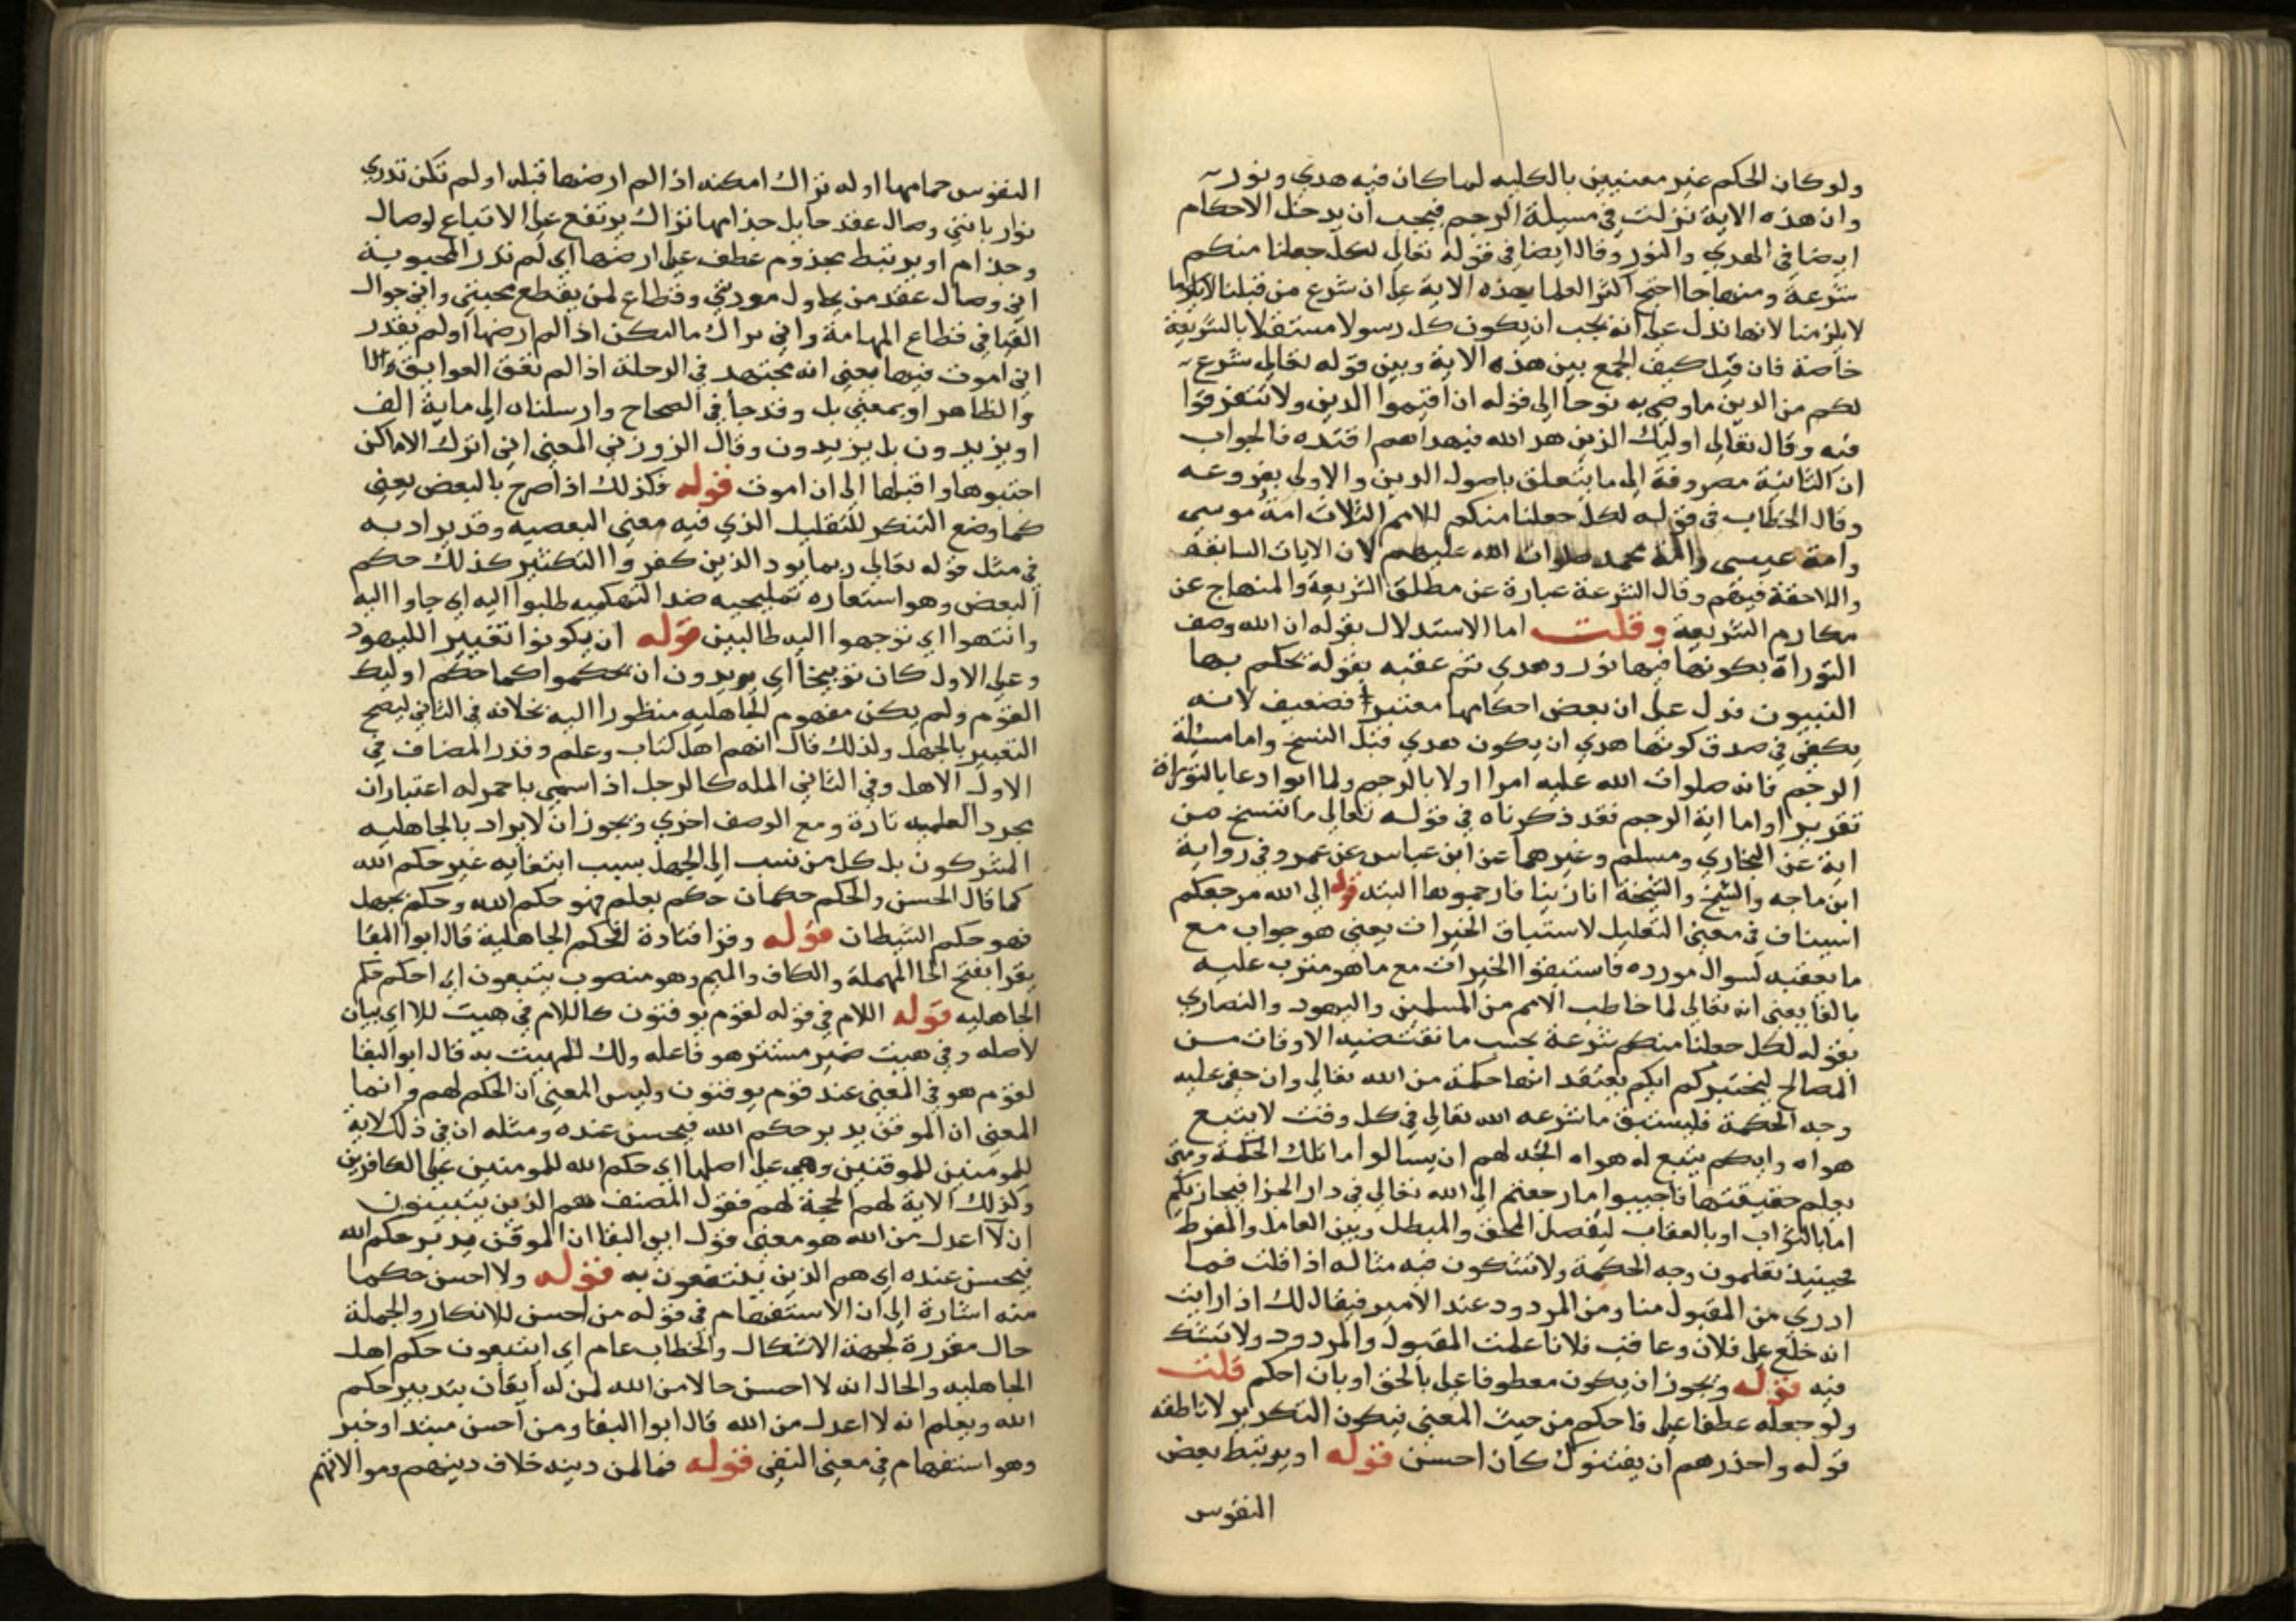 ولو كان الحكم غير معتبرين بالكليه لما كان فيه هدي ونور
وان هذه الاية نزلت في مسيلة الرجم فيجب ان يدخل الاحكام
ايضا في الهدي والنور وقال ايضا في قوله تعالى لكل جعلنا منكم
شرعة ومنهاجا احتج اكثر العلما بهذه الاية على ان شرع من قبلنا
لا يلزمنا لانها تدل على انه يجب ان يكون كل رسول مستقلا بالشريعة
خاصة فان قيل كيف الجمع بين هذه الاية وبين قوله تعالى شرع
لكم من الدين ما وصى به نوحا الى قوله ان اقيموا الدين ولا تتفرقوا
فيه وقال تعالى اوليك الذين هد الله فبهداهم اقتده فالجواب
ان الثانية مصروفة الى ما يتعلق باصول الدين والاولى بفروعه
وقال الخطاب في قوله لكل جعلنا منكم للامم الثلاث امة موسى
وامة عيسى وامة محمد صلوات الله عليهم لان الايات السابقة
واللاحقة فيهم وقال الشرعة عبارة عن مطلق الشريعة والمنهاج عن
مكارم الشريعة وقلت اما الاستدلال بقوله ان الله وصف
التوراة بكونها فيها نور وهدي ثم عقبه بقوله يحكم بها
النبيون فدل على ان بعض احكامها معتبرا فضعيف لانه
يكفي في صدق كونها هدي ان يكون هدي قبل النسخ واما مسئلة
الرجم فانه صلوات الله عليه امرا اولا بالرجم ولما ابوا دعا بالتوراة
تقريرا واما اية الرجم فقد ذكرناه في قوله تعالى ما ننسخ من
اية عن البخاري ومسلم وغيرهما عن ابن عباس عن عمر وفي رواية
ابن ماجه والشيخ والشيخة اذا زنيا فارجموهما البته قوله الى الله مرجعكم
استيناف في معنى التعليل لاستباق الخيرات يعني هو جواب مع
ما يعقبه لسوال مورده فاستبقوا الخيرات مع ما هو مترتب عليه
بالفا يعني انه تعالى لما خاطب الامم من المسلمين واليهود والنصاري
بقوله لكل جعلنا منكم شرعة بحسب ما تقتضيه الاوقات من
المصالح ليختبركم ايكم يعتقد انها حكمة من الله تعالى وان خفي عليه
وجه الحكمة فليستبق ما شرعه الله تعالى في كل وقت لا يتبع
هواه وايكم يتبع له هواه اتجه لهم ان يسالوا ما تلك الحكمة ومتى
يعلم حقيقتها فاجيبوا ما رجعتم الى الله تعالى في دار الجزا فيجازيكم
اما بالثواب او بالعقاب ليفصل المحق والمبطل وبين العامل والمفرط
فحينيذ تعلمون وجه الحكمة ولا تشكون فيه مثاله اذا قلت فما
ادري من المقبول منا ومن المردود عند الامير فيقال لك اذا رايت
انه خلع على فلان وعاقب فلانا علمت المقبول والمردود ولا تشك
فيه قوله ويجوز ان يكون معطوفا على بالحق او بان احكم قلت
ولو جعله عطفا على فاحكم من حيث المعنى فيكون التكرير لاناطة
قوله واحذرهم ان يفتنوك كان احسن قوله او يرتبط بعض
النفوس
النفوس حمامها اوله تراك امكنه اذا لم ارضها قبله او لم تكن تدري
نوار بانني وصال عقد حبايل جذامها تراك يرتفع على الاتباع لوصال
وجذام او يرتبط مجذوم عطف على ارضها اي لم تدر المحبوبة
اني وصال عقد من يحاول مودتي وقطاع لمن يقطع محبتي واني جوال
الفيافي قطاع المهامة واني تراك ماليكن اذا لم ارضها او لم يقدر
اني اموت فيها يعني انه مجتهد في الرحلة اذا لم تعق العوايق
والظاهر او بمعنى بل وقد جا في الصحاح وارسلناه الى ماية الف
او يزيدون بل يزيدون وقال الزوزني المعنى اني اترك الاماكن
اجتبوها واقبلها الى ان اموت قوله فكذلك اذا صرح بالبعض يعني
كما وضع التنكر للتقليل الذي فيه معنى البعضيه وقد يراد به
في مثل قوله تعالى ربما يود الذين كفروا التكثير كذلك حكم
البعض وهو استعاره تمليحيه ضد التهكميه طلبوا اليه اي جاوا اليه
وانتهوا اي توجهوا اليه طالبين قوله ان يكونوا تعيير اليهود
وعلى الاول كان توبيخا اي يريدون ان تحكموا كما حكم اوليك
القوم ولم يكن مفهوم الجاهليه منظورا اليه بخلافه في الثاني ليصح
التعيير بالجهل ولذلك قال انهم اهل كتاب وعلم وقدر المضاف في
الاول الاهل وفي الثاني المله كالرجل اذا سمي باحمر له اعتباران
مجرد العلميه تارة ومع الوصف اخري ويجوز ان لا يراد بالجاهليه
المشركون بل كل من نسب الى الجهل بسبب ابتغايه غير حكم الله
كما قال الحسن والحكم حكمان حكم بعلم فهو حكم الله وحكم بجهل
فهو حكم الشيطان قوله وقرا قتادة افحكم الجاهلية قال ابوا البقا
يقرا بفتح الحا المهملة والكاف والميم وهو منصوب يتبعون اي احكم حكم
الجاهليه قوله اللام في قوله لقوم يوقنون كاللام في هيت لك اي بيان
لاصله وفي هيت ضمير مستتر هو فاعله ولك للمهيت به قال ابوا البقا
لقوم هو في المعنى عند قوم يوقنون وليس المعنى ان الحكم لهم وانما
المعنى ان الموقن يدبر حكم الله فيحسن عنده ومثله ان في ذلك لاية
للمومنين للموقنين وهي على اصلها اي حكم الله للمومنين على الكافرين
وكذلك الاية لهم الحجة لهم فقول المصنف هم الذين يتبينون
ان لا اعدل من الله هو معنى قول ابي البقا ان الموقن يدبر حكم الله
فيحسن عنده اي هم الذين ينتفعون به قوله ولا احسن حكما
منه اشارة الى ان الاستفهام في قوله من احسن للانكار والجملة
حال مقررة لجهة الاشكال والخطاب عام اي ايتبعون حكم اهل
الجاهليه والحال انه لا احسن حالا من الله لمن له ايقان يتدبير حكم
الله ويعلم انه لا اعدل من الله قال ابوا البقا ومن احسن مبتدا وخبر
وهو استفهام في معنى النفي قوله فما لمن دينه خلاف دينهم وموالاتهم